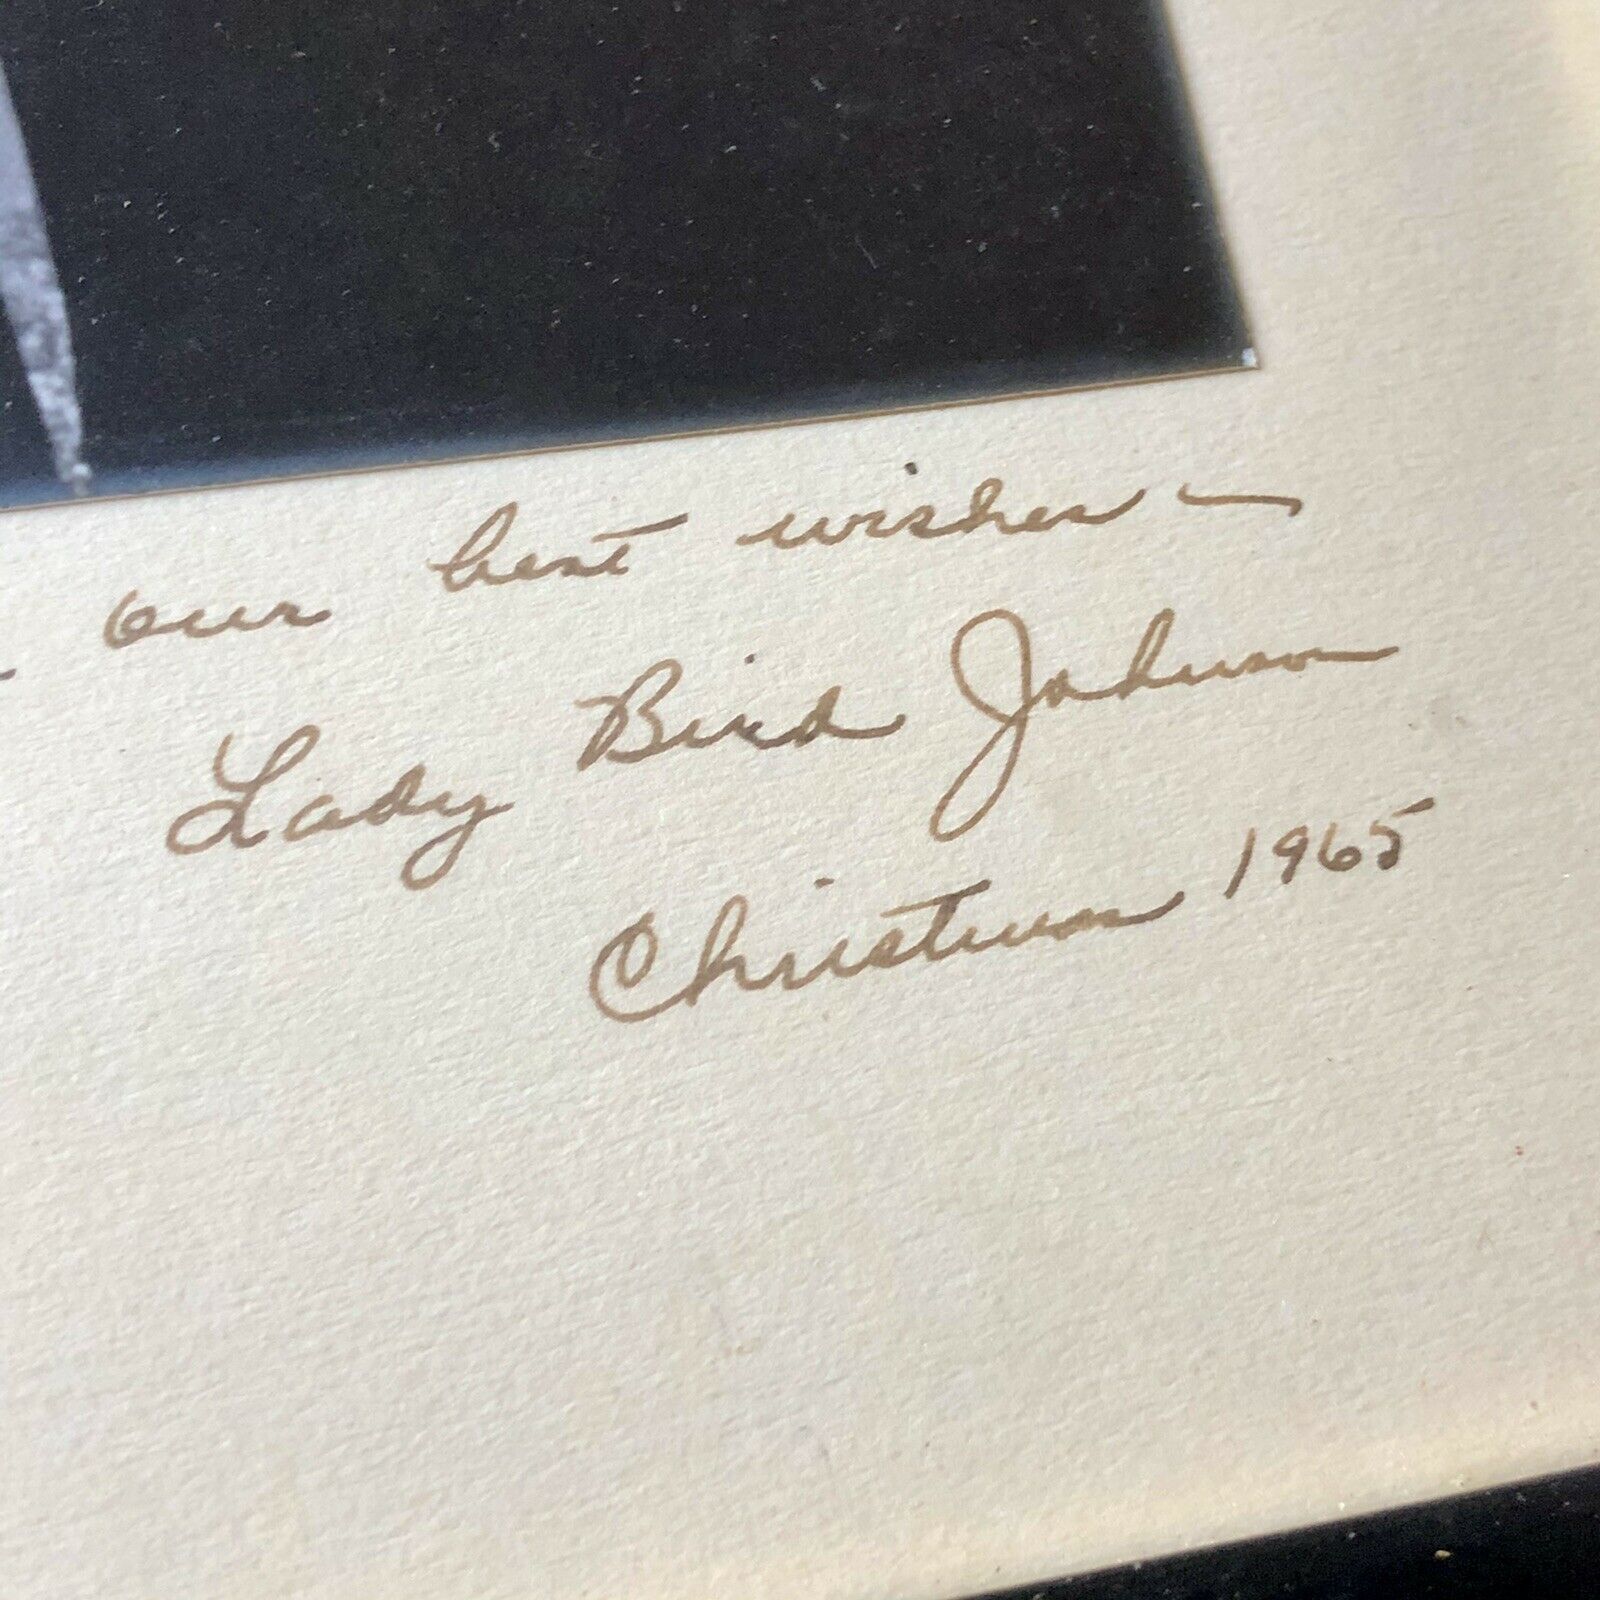 our best wishes —
Lady Bird Johnson
Christmas 1965